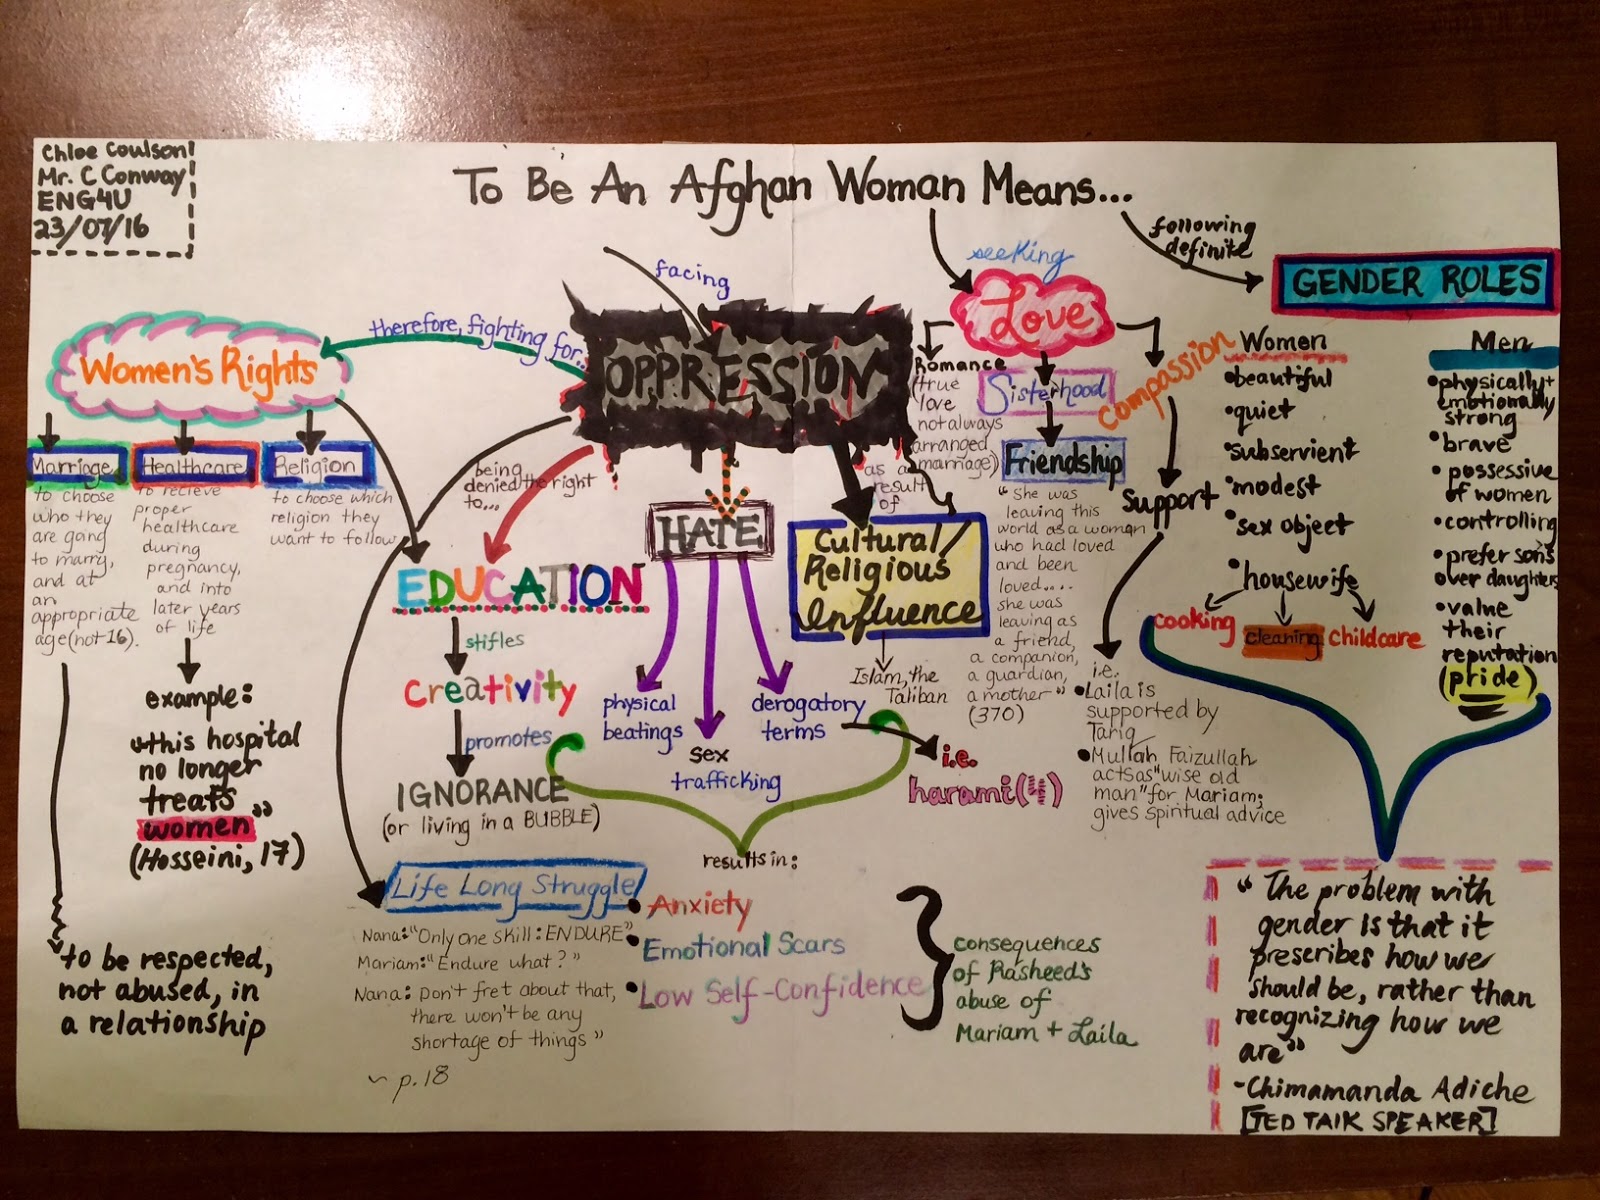 Chloe Coulson
Mr. C Conway
ENG4U
23/07/16
To Be An Afghan Woman Means...
facing
OPPRESSION
therefore, fighting for...
Women's Rights
Marriage
to choose
who they
are going
to marry,
and at
an
appropriate
age (not 16).
to be respected,
not abused, in
a relationship
Healthcare
to recieve
proper
healthcare
during
pregnancy,
and into
later years
of life
example:
"this hospital
no longer
treats
women"
(Hosseini, 17)
Religion
to choose which
religion they
want to follow
being
denied the right
to...
EDUCATION
stifles
creativity
promotes
IGNORANCE
(or living in a BUBBLE)
Life Long Struggle
Nana: "Only one skill: ENDURE"
Mariam: "Endure what?"
Nana: Don't fret about that,
there won't be any
shortage of things"
~ p.18
HATE
physical
beatings
sex
trafficking
derogatory
terms
i.e.
harami (4)
results in:
Anxiety
Emotional Scars
Low Self-Confidence
consequences
of Rasheed's
abuse of
Mariam + Laila
as a
result
of
Cultural/
Religious
Influence
Islam, the
Taliban
seeking
Love
Romance
(true
love
not always
arranged
marriage)
Sisterhood
Friendship
"She was
leaving this
world as a woman
who had loved
and been
loved....
she was
leaving as
a friend,
a companion,
a guardian,
a mother"
(370)
compassion
Support
i.e.
Laila is
supported by
Tariq
Mullah Faizullah
acts as "wise old
man" for Mariam;
gives spiritual advice
following
definite
GENDER ROLES
Women
beautiful
quiet
subservient
modest
sex object
housewife
cooking
cleaning
childcare
Men
physically +
emotionally
strong
brave
possessive
of women
controlling
prefer sons
over daughters
value
their
reputation
(pride)
"The problem with
gender is that it
prescribes how we
should be, rather than
recognizing how we
are"
-Chimamanda Adiche
[TED TALK SPEAKER]